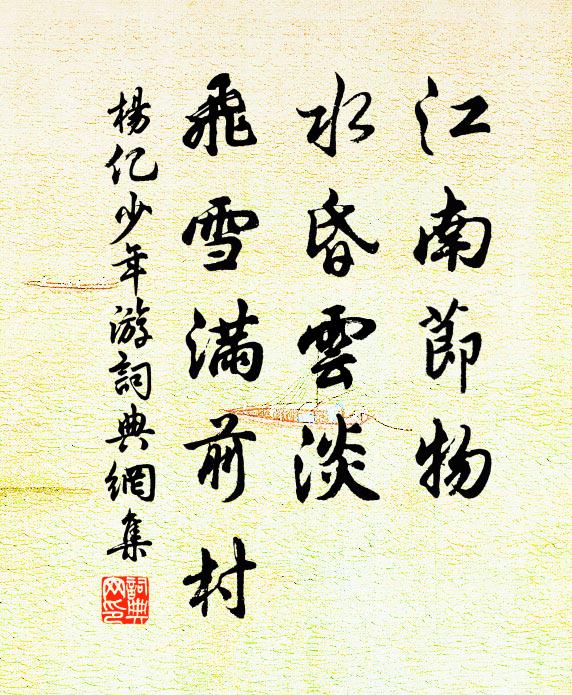 江南節物
水昏雲淡
飛雪滿前村
楊億少年游詞典網集
詞典網印